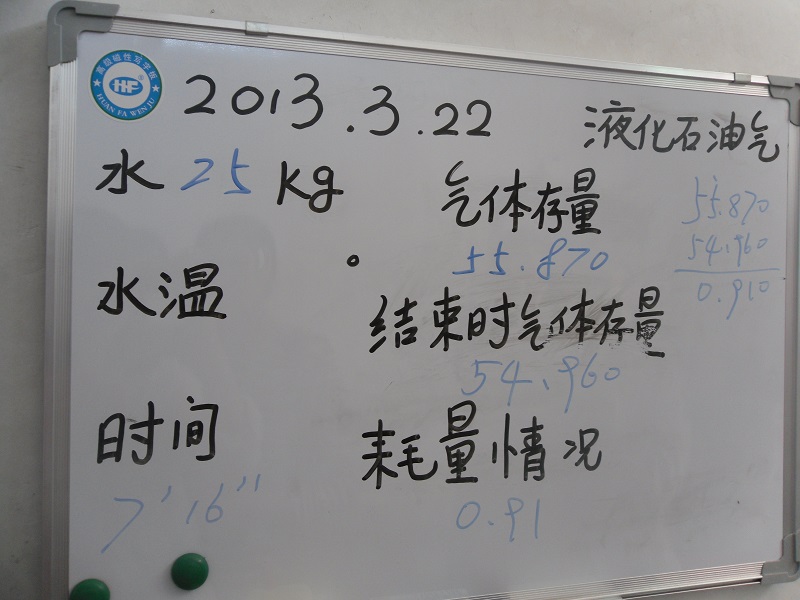 高级磁性写字板
HF
HUAN FA WEN JU
2013.3.22
液化石油气
水 25 kg
气体存量
55.870
55.870
54.960
0.910
水温
结束时气体存量
54.960
时间
耗量情况
7'16"
0.91